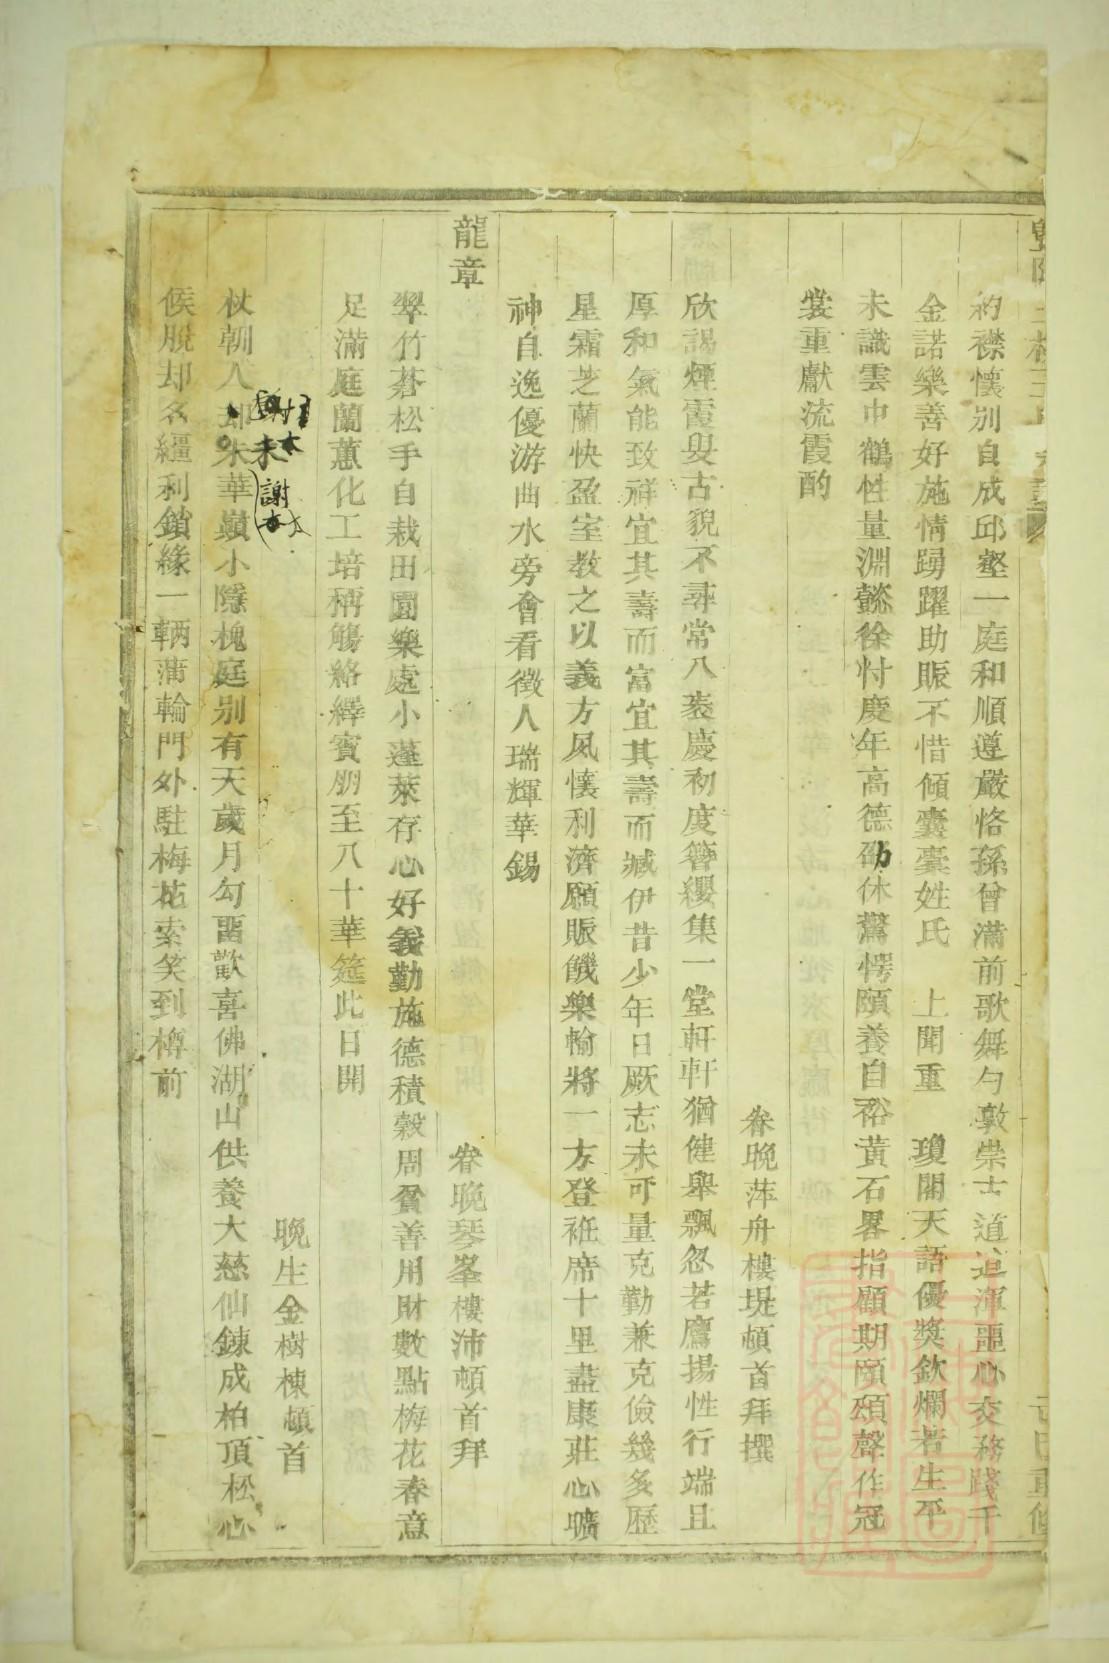 約襟懷别自成邱壑一庭和順遵嚴恪孫曾滿前歌舞勺敦崇士道追渾噩心交務踐千
金諾樂善好施情踴躍助賑不惜傾囊橐姓氏 上聞重 瓊閣天語優奬欽爛若生平
未識雲中鶴性量淵懿徐忖度年高德劭休驚愕頤養自裕黃石畧指顧期頤頌聲作冠
裳重獻流霞酌
眷晚萍舟樓堤頓首拜撰
欣謁煙霞叟古貌不尋常八袠慶初度簪纓集一堂軒軒猶健舉飄忽若鷹揚性行端且
厚和氣能致祥宜其壽而富宜其壽而臧伊昔少年日厥志未可量克勤兼克儉幾多歷
星霜芝蘭快盈室教之以義方夙懷利濟願賑饑樂輸將一方登袵席十里盡康莊心曠
神自逸優游曲水旁會看徵人瑞輝華錫
龍章
眷晚琴峯樓沛頓首拜
翠竹蒼松手自栽田園樂處小蓬萊存心好義勤施德積穀周貧善用財數點梅花春意
足滿庭蘭蕙化工培稱觴絡繹賓朋至八十華筵此日開
晚生金樹棟頓首
杖朝人却未華巔小隱槐庭别有天歲月勾畱歡喜佛湖山供養大慈仙鍊成柏頂松心
侯脫却名韁利鎖緣一輛蒲輪門外駐梅花索笑到樽前